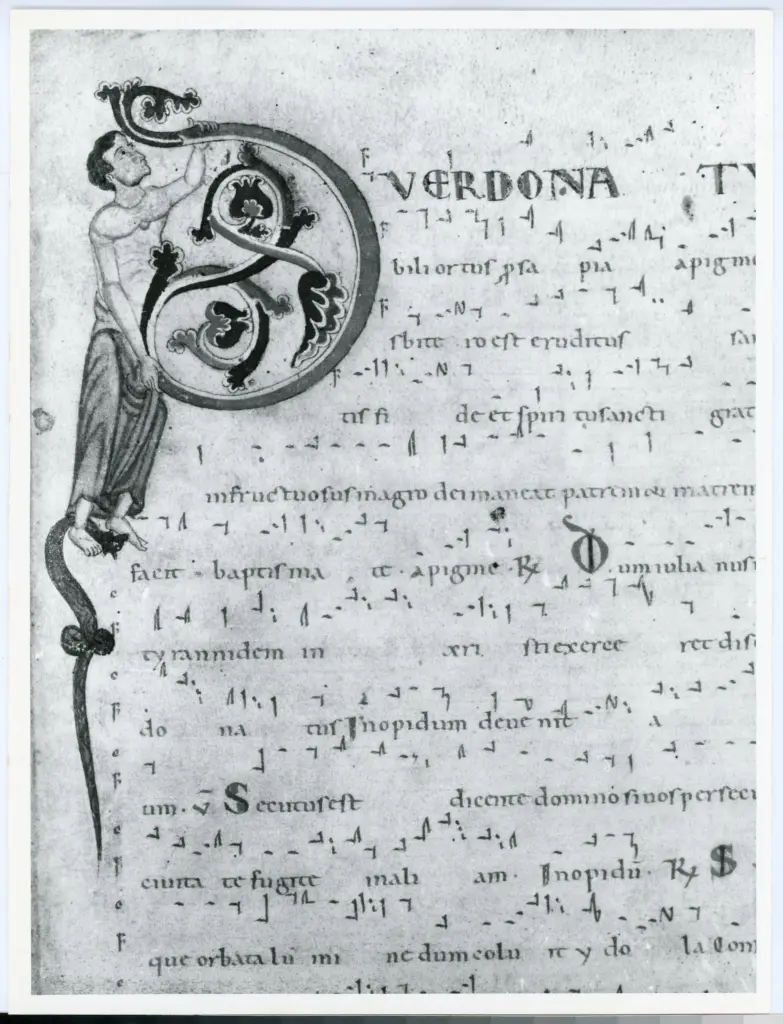 PVERDONA TV
bili ortus ꝓsa pia apigme
sbite ro est eruditus
tis fi de et spiri tusancti grat
infructuosus inagro dei maneat patrem & matrem
facit · baptisma te · apigme · ℞ Dum iulia
tyrannidem in xpi sti exerce ret dis
do na tus Inopidum deue nit a
um · v̄ Secutus est dicente domino si uos persecu
ciuita te fugite inali am · Inopidū ℞ S
que orbata lu mi ne dum colu it y do la Com